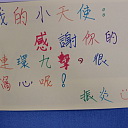 我的小天使：
感謝你的
連環九擊，很
痛心呢！
振炎